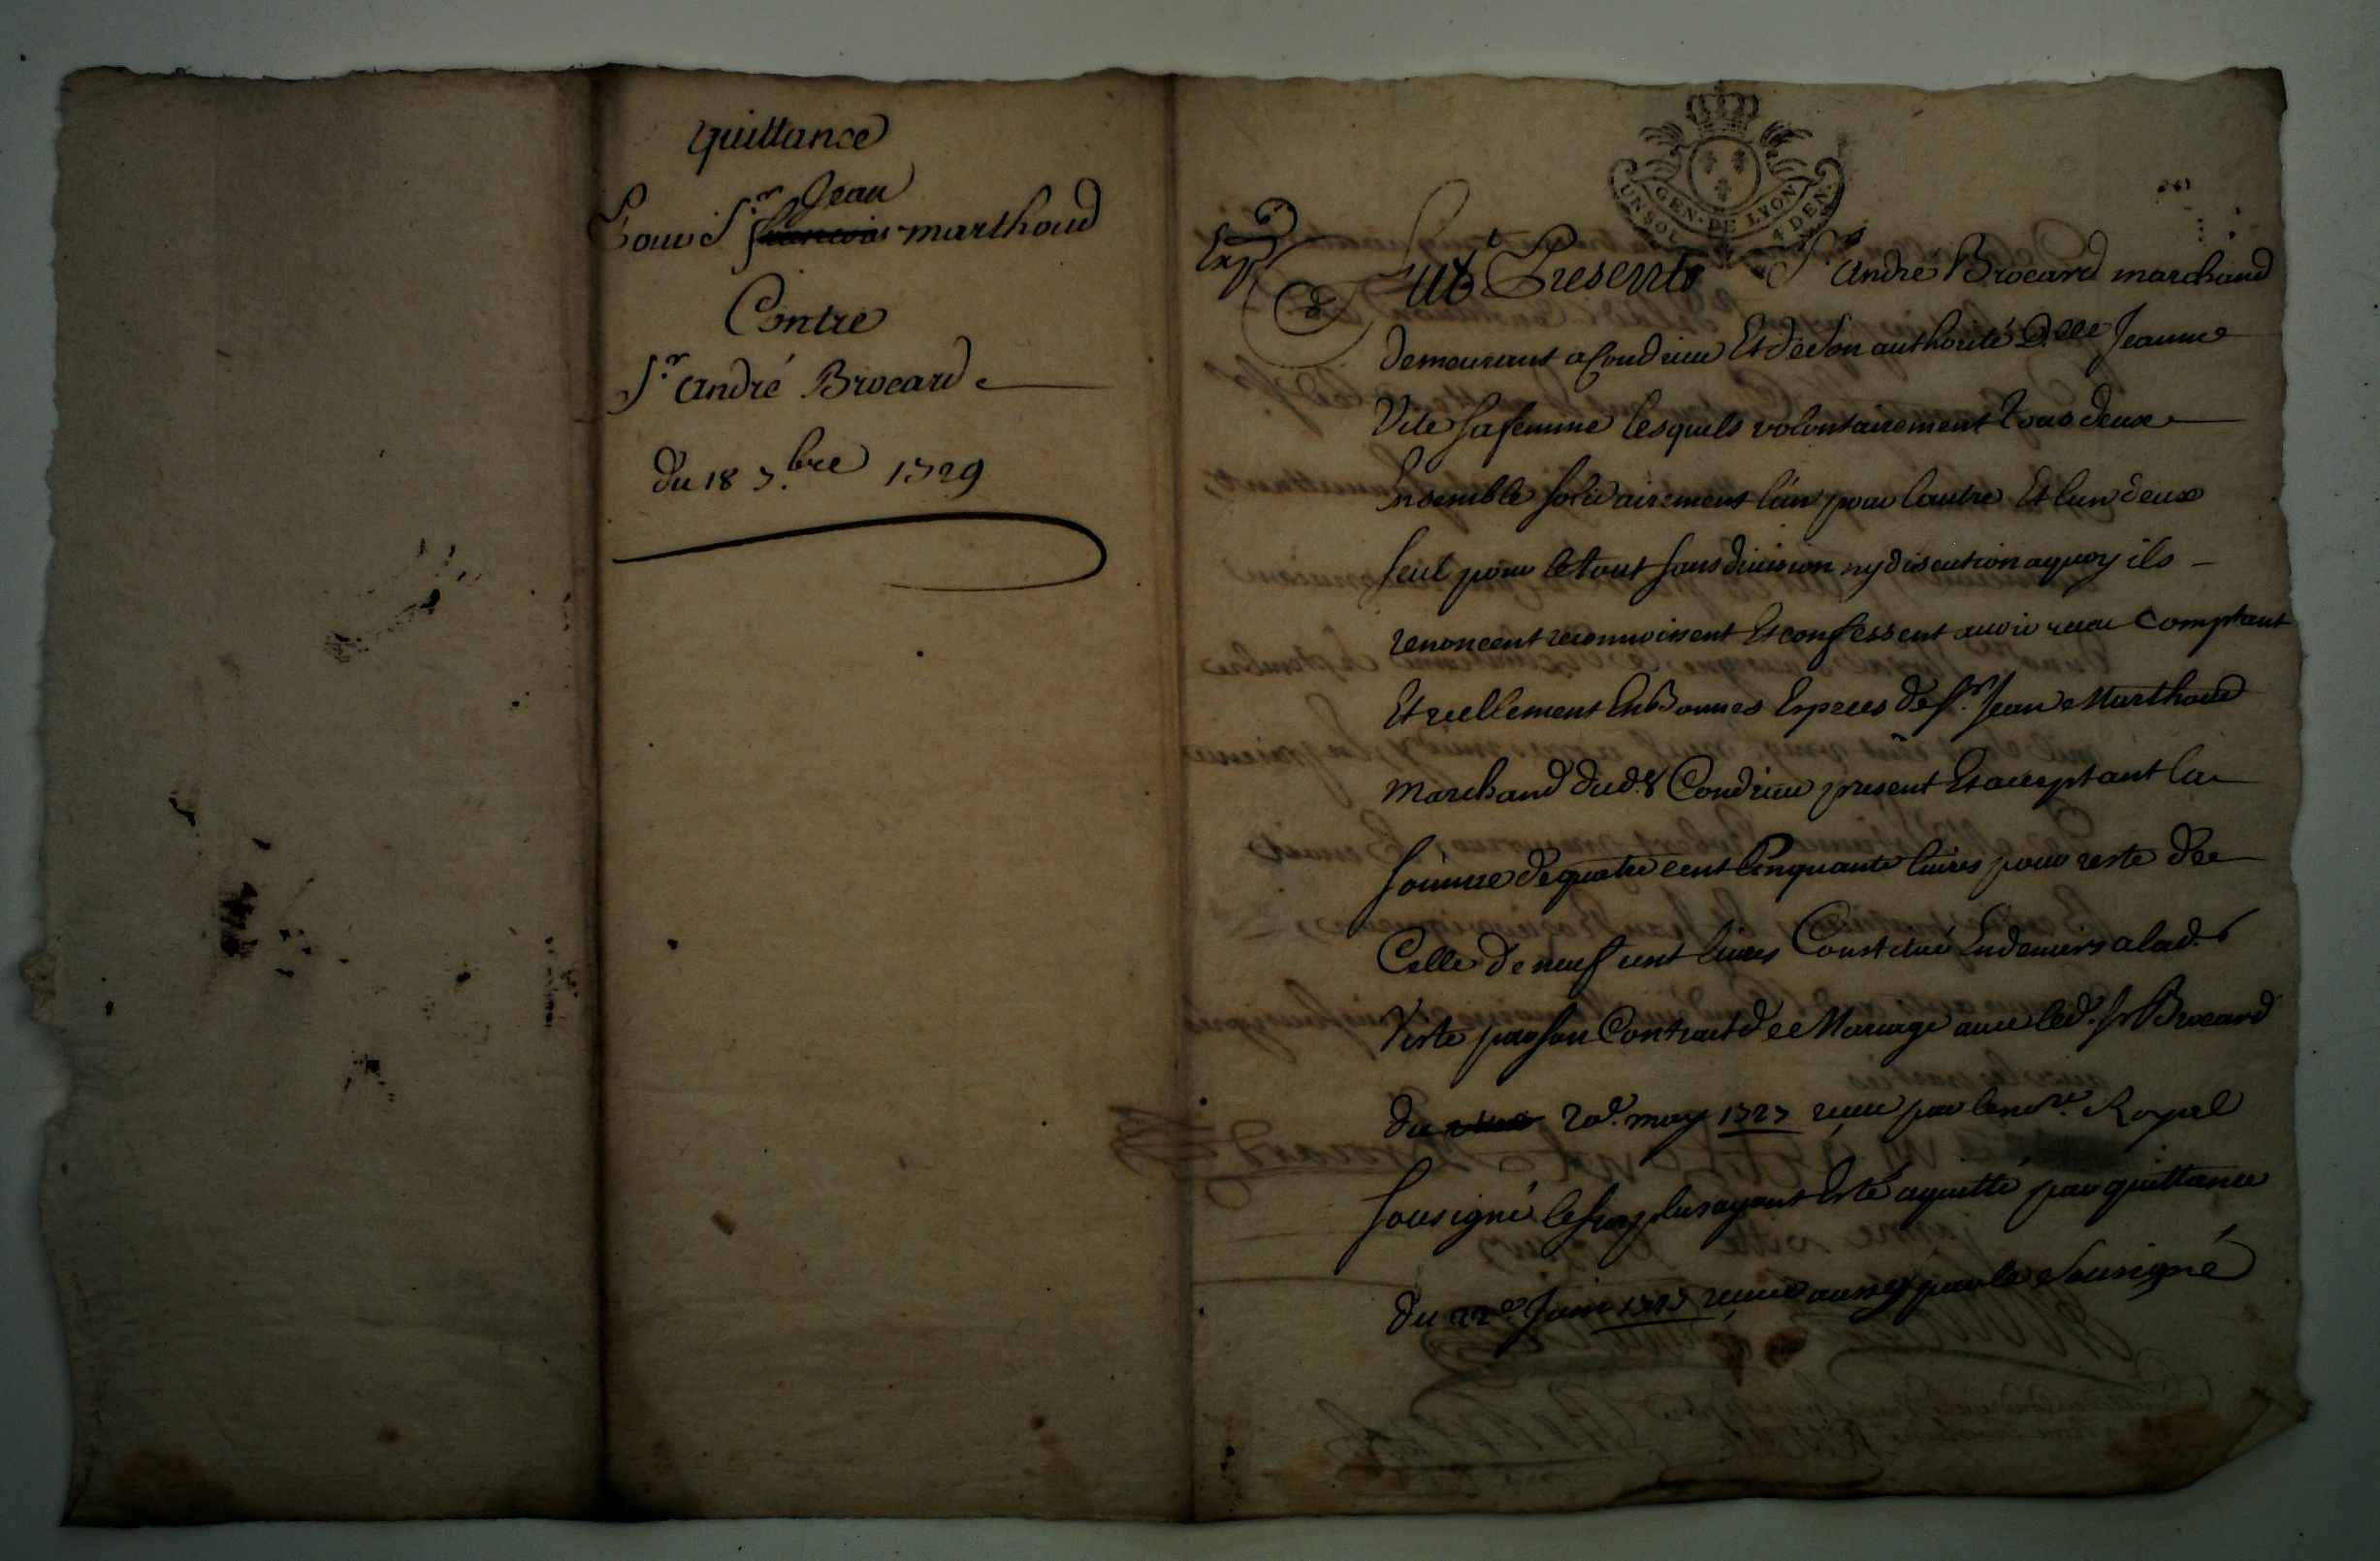 quittance
Jean
Pour Sr francois marthoud
Contre
Sr andré Brocard
du 18 7.bre 1729
GEN. DE LYON
UN SOL 4 DEN.
Exp
fut Presents Sr andre Brocard marchand
demeurant a Condrieu Et de son authorité Dlle Jeanne
Vite sa femme lesquels volontairement tous deux
Ensemble solidairement lún pour lautre Et lun deux
seul pour le tout sans division ny discution aquoy ils
renoncent reconnoissent Et confessent auoir receu comptant
Et reellement En Bonnes Especes de sr. Jean Marthoud
marchand dud.t Condrieu present Et acceptant la
somme de quatre cent Cinquante liures pour reste de
Celle de neuf cent liures Constitué En deniers a lad.
Vite par son Contract de Mariage auec led. sr Brocard
du 20e. may 1727 receu par le nore. Royal
sousigné le surplus ayant Esté aquitté par quittance
du 22e Juin 1727 receue aussy par le sousigné